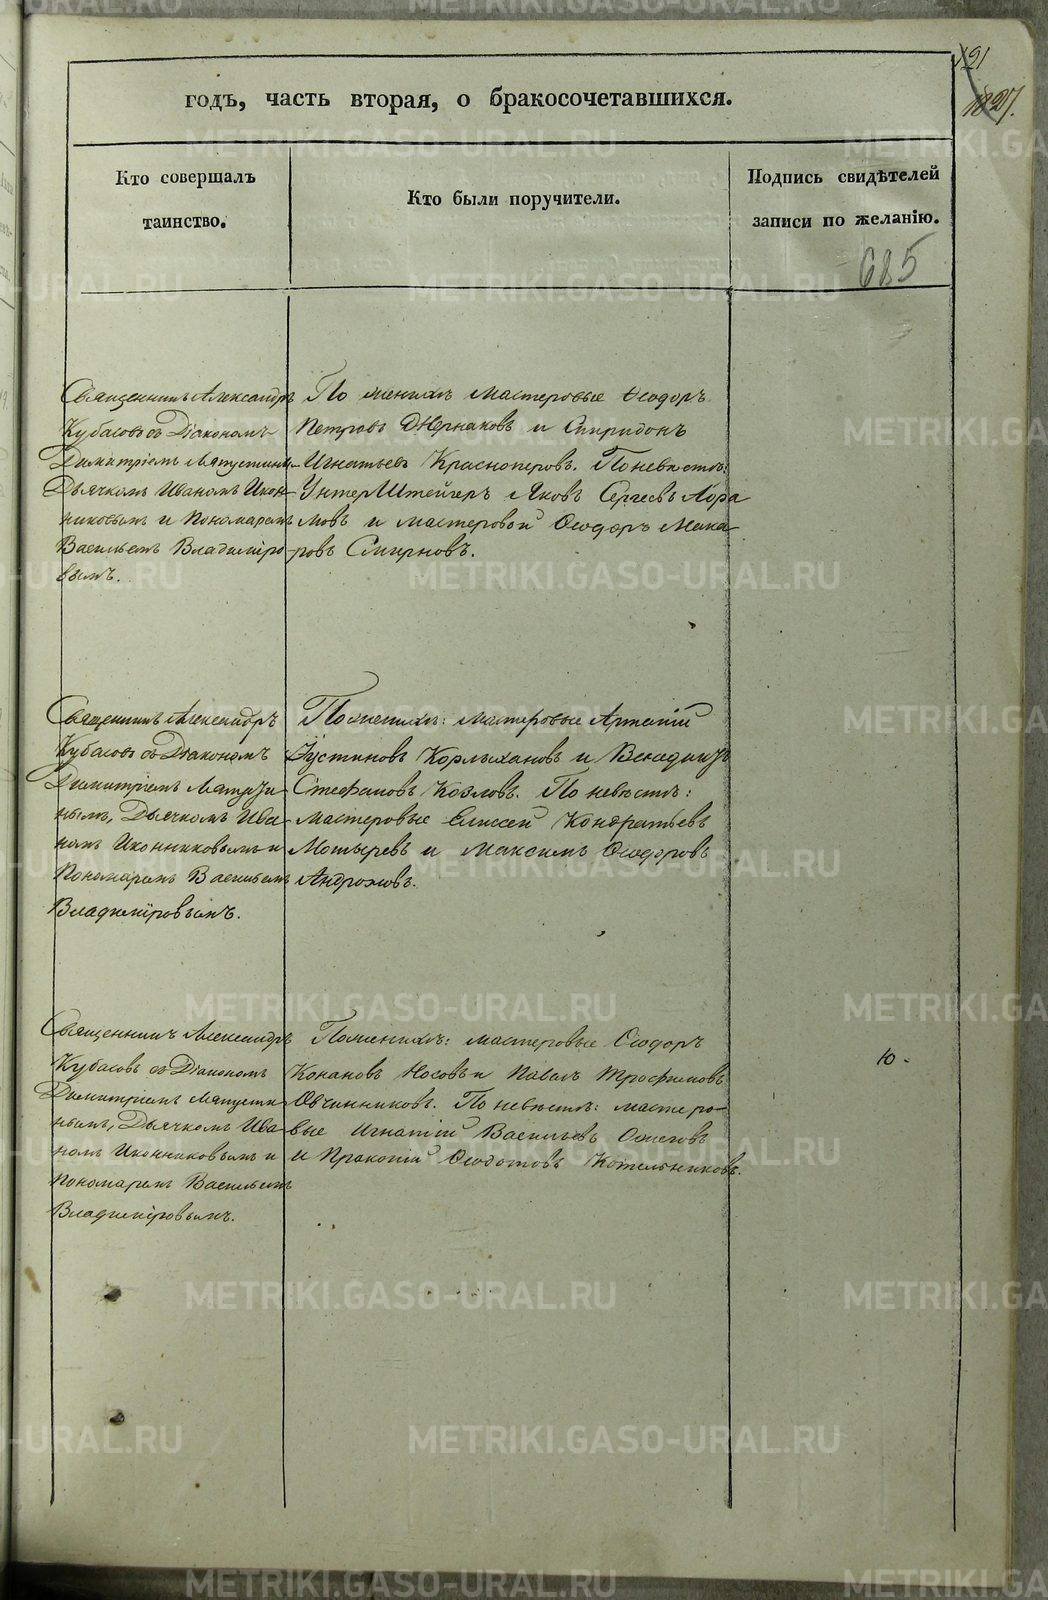 121
1827.
годъ, часть вторая, о бракосочетавшихся.
Кто совершалъ
таинство.
Кто были поручители.
Подпись свидѣтелей
записи по желанію.
685
Священникъ Александръ
Кубасовъ съ Діакономъ
Димитріемъ Ляпустинымъ
Дьячкомъ Иваномъ Икон-
никовымъ и Пономаремъ
Васильемъ Владиміро-
вымъ.
По женихѣ мастеровые Ѳеодоръ
Петровъ и Спиридонъ
Игнатьевъ Красноперовъ. По невѣстѣ:
УнтерШтейгеръ Яковъ Сергеевъ
и мастеровой Ѳеодоръ Мака-
ровъ Смирновъ.
Священникъ Александръ
Кубасовъ съ Діакономъ
Димитріемъ Ляпусти-
нымъ, Дьячкомъ Ива-
номъ Иконниковымъ и
Пономаремъ Васильемъ
Владиміровымъ.
По женихѣ: мастеровые Артемій
Іустиновъ Корлыхановъ и Венедиктъ
Стефановъ Козловъ. По невѣстѣ:
мастеровые Елисей Кондратьевъ
Мотыревъ и Максимъ Ѳеодоровъ
Священникъ Александръ
Кубасовъ съ Діакономъ
Димитріемъ Ляпусти-
нымъ, Дьячкомъ Ива-
номъ Иконниковымъ и
Пономаремъ Васильемъ
Владиміровымъ.
По женихѣ: мастеровые Ѳеодоръ
Конановъ Носовъ и Павелъ Трофимовъ
Овчинниковъ. По невѣстѣ: мастеро-
вые Игнатій Васильевъ
и Пракопій Ѳеодотовъ Котельниковъ.
Ю.
METRIKI.GASO-URAL.RU